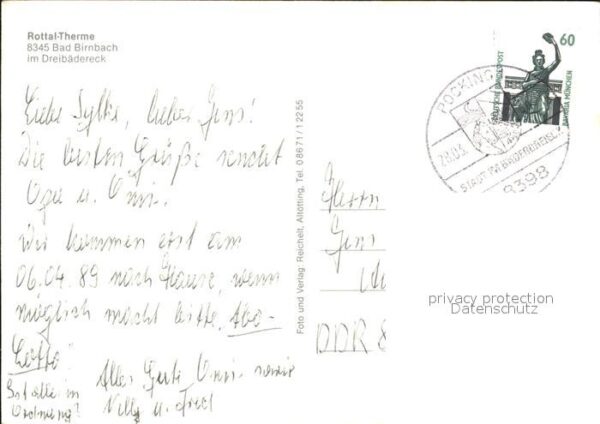 Rottal-Therme
8345 Bad Birnbach
im Dreibädereck
Liebe Sylke, lieber Jens!
Die besten Grüße sendet
Opa u. Omi.
Wir kommen erst am
06.04.89 nach Hause, wenn
möglich macht bitte Abo-
Lotto!
Ist alles in
Ordnung?
Alles Gute Omi sowie
Willy u. Fred
Foto und Verlag: Reichelt, Altötting, Tel. 08671/12255
Herrn
Jens
DDR 8
60
DEUTSCHE BUNDESPOST
BAVARIA MÜNCHEN
POCKING
STADT IM BÄDERDREIECK
8398
privacy protection
Datenschutz